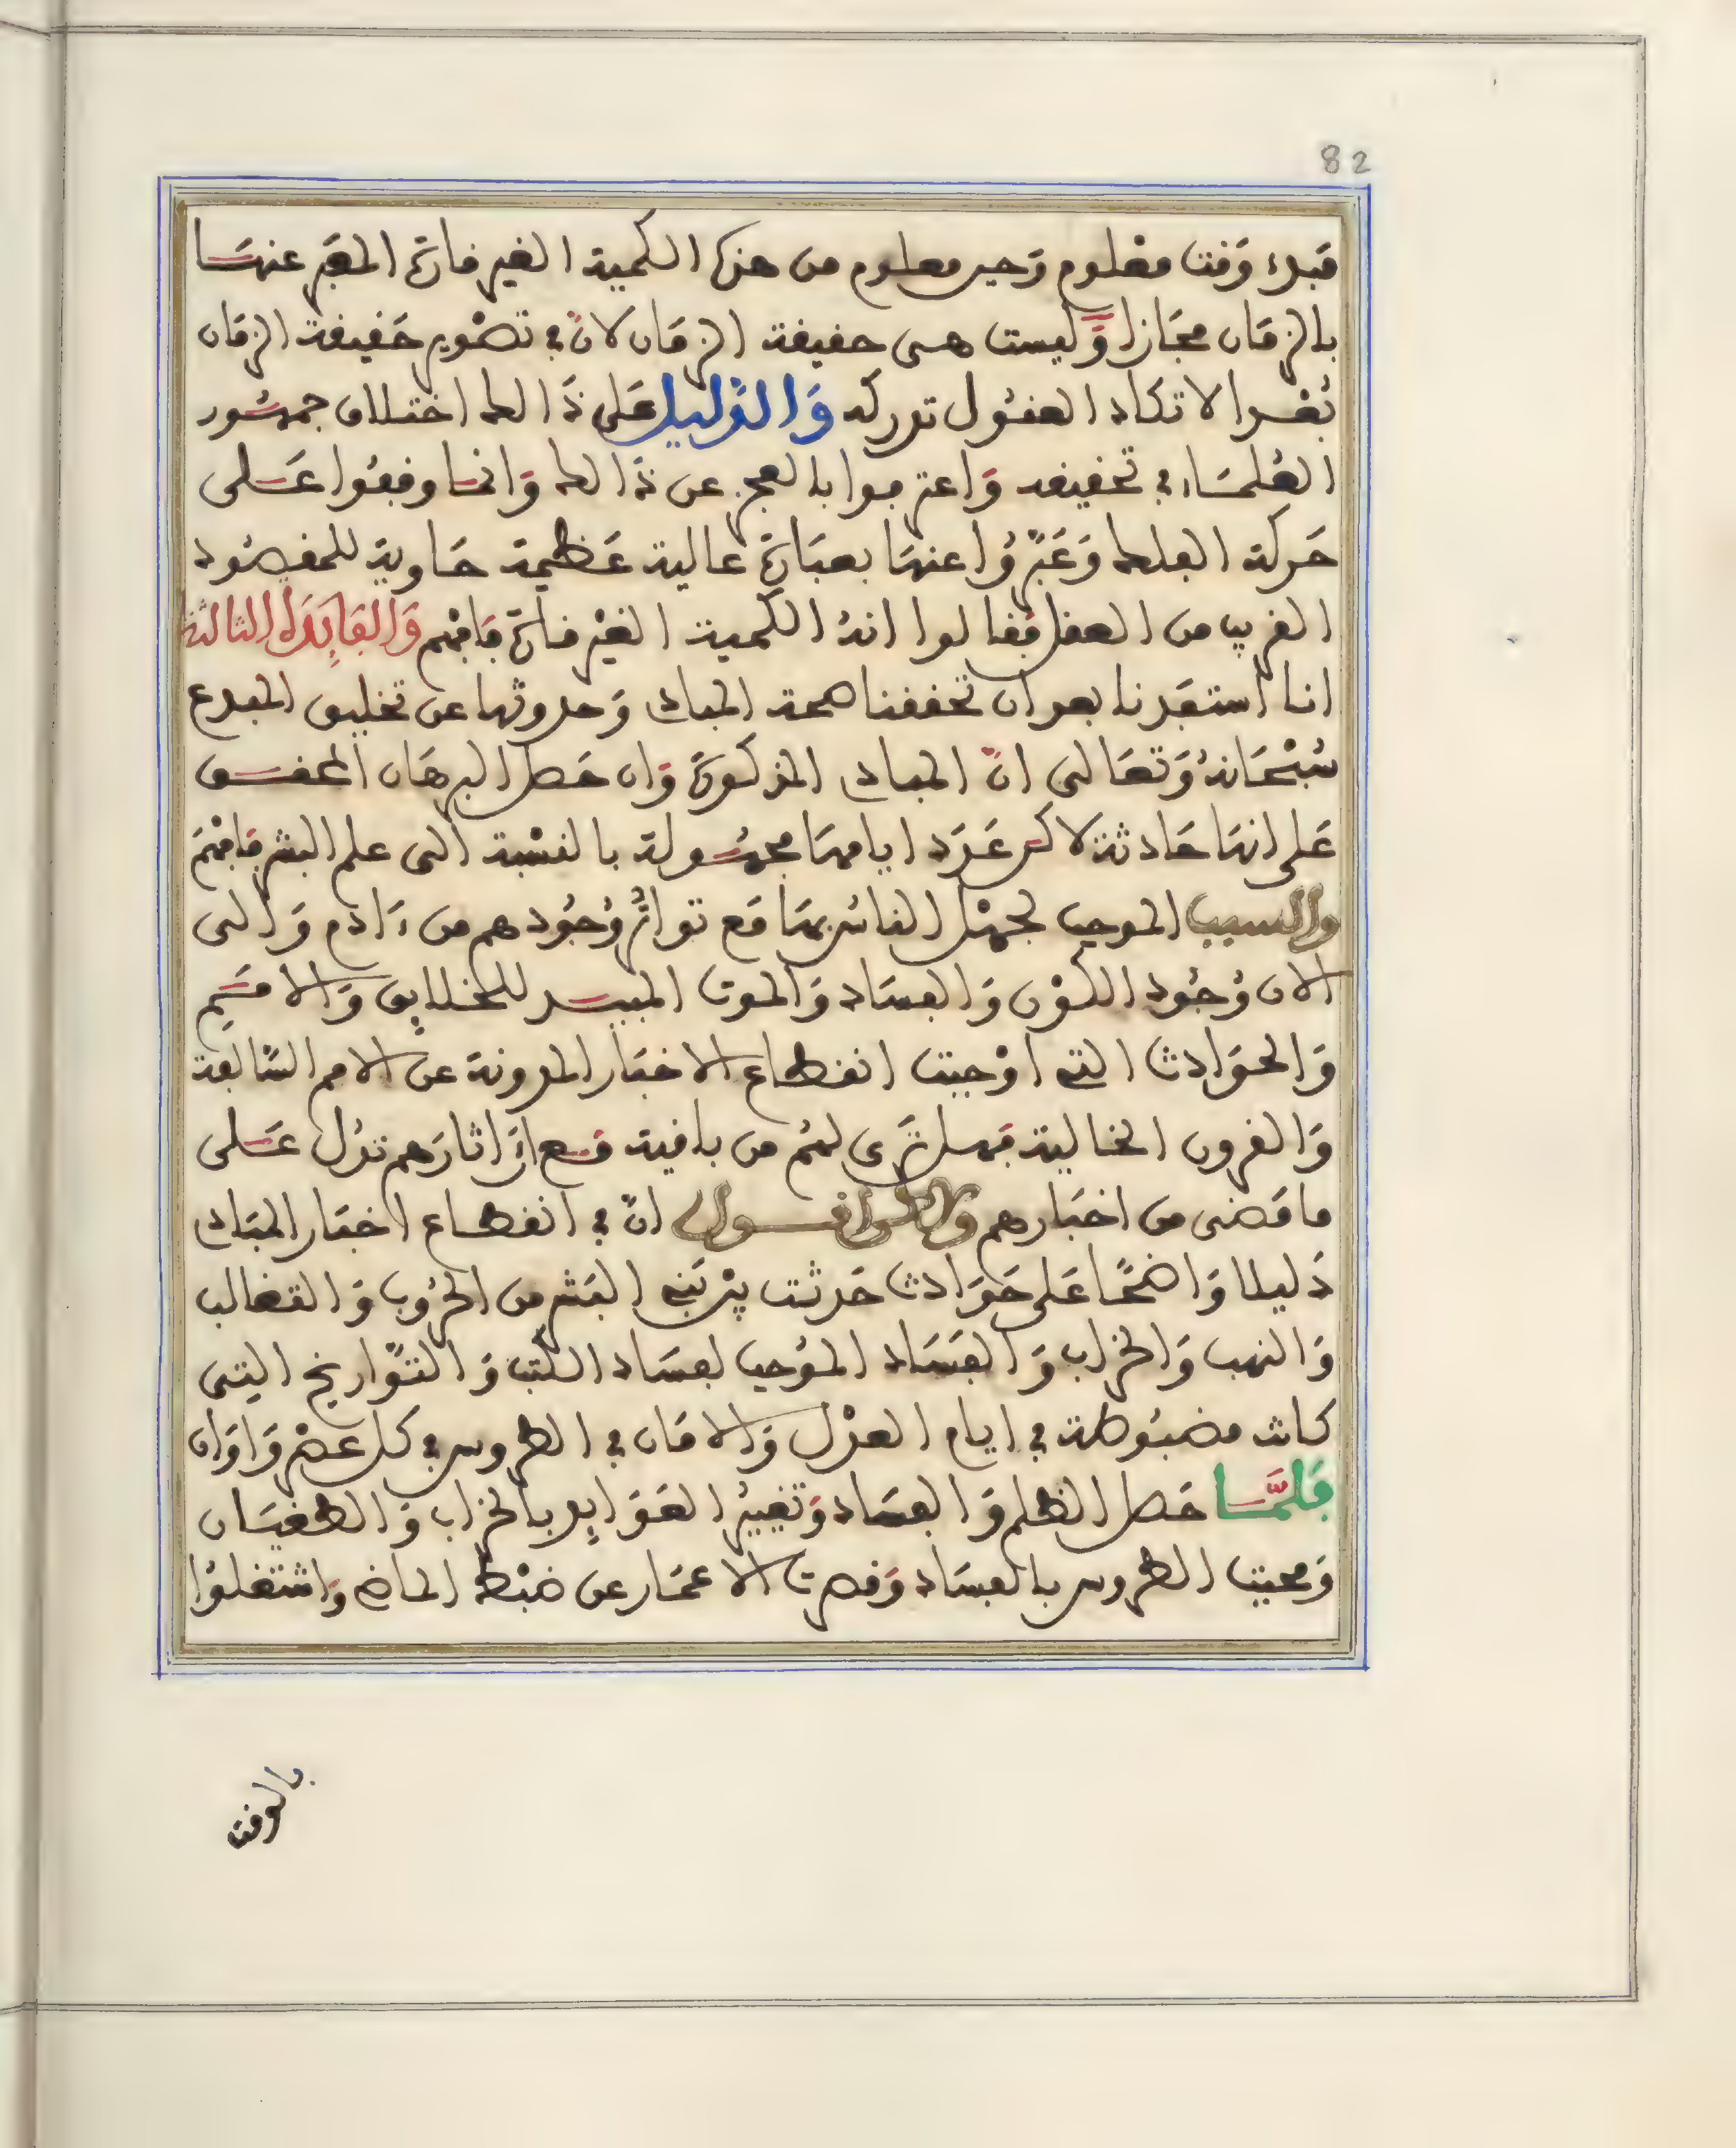 82
مبدء وَقت معْلوم وَحين معلوم من هذه الكمية الغير قارة المعَبر عنهَا
بالزمَان مجَازا وَليست هى حقيقة الزمَان لانّ في تصْوير حَقيقة الزمَان
بُعْدا لا تكاد العقُول تدركه وَالدَّليل عَلى ذَالك اختلاف جمهُور
العُلمَاء في تحقيقه وَاعترفوا بالعجز عن ذَالك وَانما وقفُوا عَلى
حَركة الفلك وَعَبّرُوا عنهَا بعبَارة عالية عَظيمة حَاوية للمقصُود
القريب من العقل فقالوا انهُ الكمية الغيْر قارة فَافهْم وَالفَايِدَة الثالثة
انا استفَدنا بعد ان تحققنا صحة المباد وَحدوثها عن تخليق المبدع
سُبْحَانهُ وَتعَالى انّ المباد المذكورَة وَان حَصل البرهَان المحقق
عَلى انهَا حَادثة لاكن عَدَد ايامهَا مجهُولة بالنسْبة الى علم البشر فَافهْم
والسبب الموجب لجهْل الناسْ بهَا مَع تواتُر وُجُودهم من ءَادم وَالى
الان وُجُود الكوْن وَالفسَاد وَالموت المبيد للخلايِق وَالامَم
وَالحوَادث التى اوْجبت انقطاع الاخبَار المدونة عن الامم السَّالفة
وَالقرون الخالية فهل تَرى لهُم من باقية مَع انّ اثارَهم تدُل عَلى
ما مَضى من اخبَارهم ولذا اقول انّ في انقطاع اخبَار المبَاد
دَليلا وَاضحًا عَلى حَوَادث حَدثت بيْن بَنى البَشر من الحرُوب وَالتغالب
وَالنهب وَالخرَاب وَالفسَاد المؤجب لفسَاد الكتب وَالتوَّاريخ التى
كانت مضبُوطة في ايام العدْل وَالامَان في الطروس في كل عصْر وَاوَان
فَلمَّا حَصل الظلم وَالفسَاد وَتغييرُ العَوَايِد بالخرَاب وَالطغيَان
وَمحيت الطروس بالفسَاد وَقصرت الاعمَار عن ضبْط الماضي وَاشتغلوُا
بالوقت